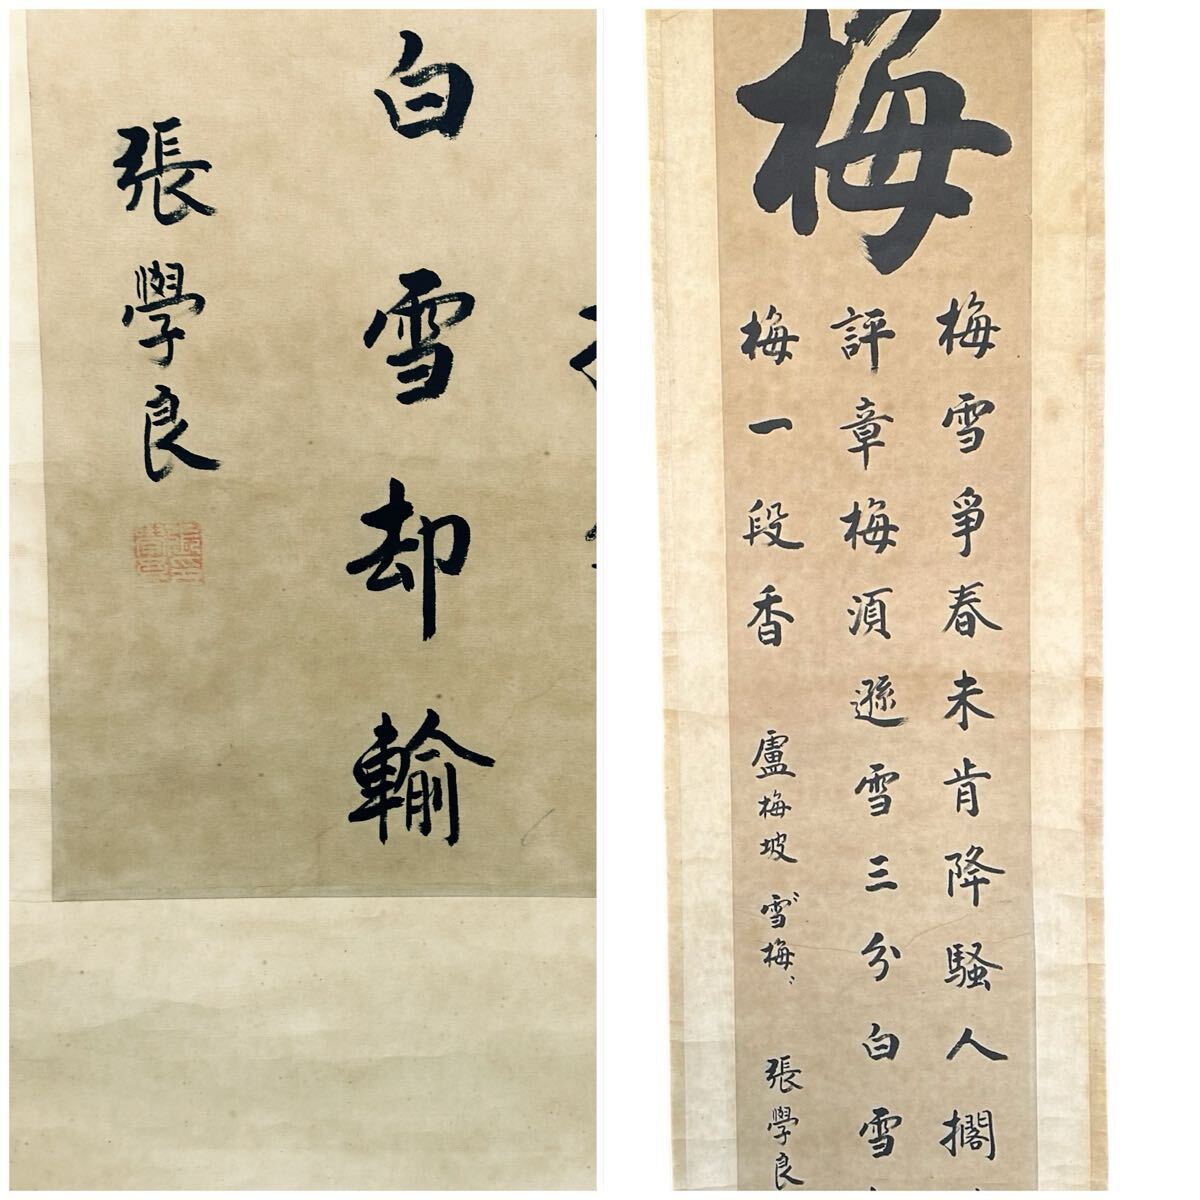 白雪却輸
張學良
梅
梅雪爭春未肯降騷人擱
評章梅須遜雪三分白雪
梅一段香
盧梅坡 雪梅
張學良